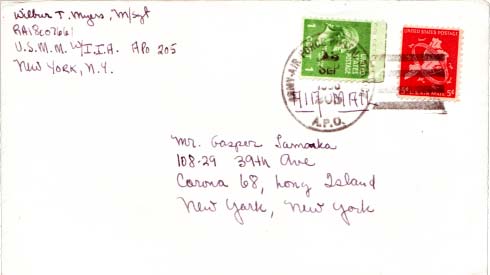 Wilbur T. Myers, M/Sgt
RA18607661
U.S.M.M. W/I.I.A. APO 205
New York, N.Y.
1
UNITED STATES POSTAGE
5¢
U.S. AIR MAIL
5¢
ARMY-AIR FORCE
A.P.O.
AIR MAIL
Mr. Gasper
108-29 39th Ave
Corona 68, Long Island
New York, New York